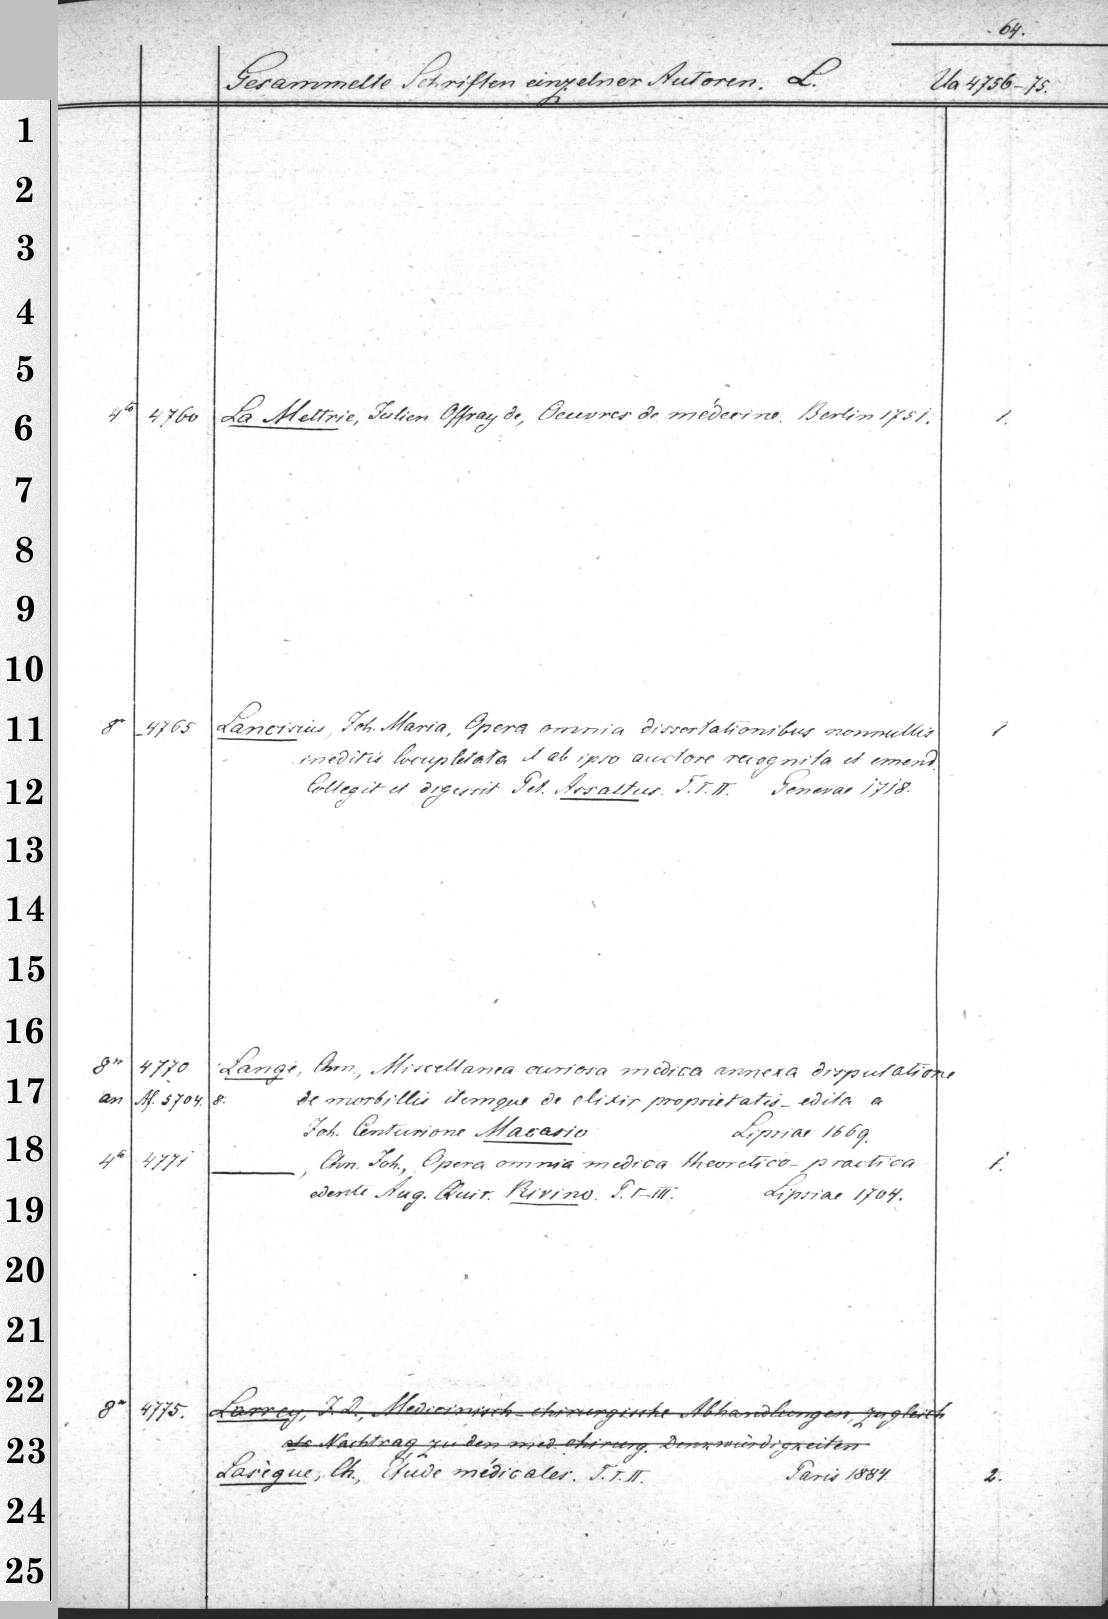 64.
Gesammelte Schriften einzelner Autoren. L. Ua 4756–75.
1
2
3
4
5
6
4to 4760 La Mettrie, Julien Offray de, Oeuvres de médecine. Berlin 1751. 1.
7
8
9
10
11
8o 4765 Lancisius, Joh. Maria, Opera omnia dissertationibus nonnullis 1
ineditis locupletata et ab ipso auctore recognita et emend.
12
Collegit et digessit Pet. Assaltus. T. I. II. Genevae 1718.
13
14
15
16
8vo 4770 Lange, Chrn., Miscellanea curiosa medica annexa disputatione
17
an Af. 5704. 8. de morbillis itemque de elixir proprietatis – edita a
Joh. Centurione Macasio Lipsiae 1669.
18
4to 4771 ———, Chn. Joh., Opera omnia medica theoretico-practica 1.
edente Aug. Quir. Rivino. P. I–III. Lipsiae 1704.
19
20
21
22
8o 4775. Larrey, J. D., Medicinisch-chirurgische Abhandlungen, zugleich
als Nachtrag zu den med. chirurg. Denkwürdigkeiten
23
Lasègue, Ch., Étude médicales. T. I. II. Paris 1884 2.
24
25